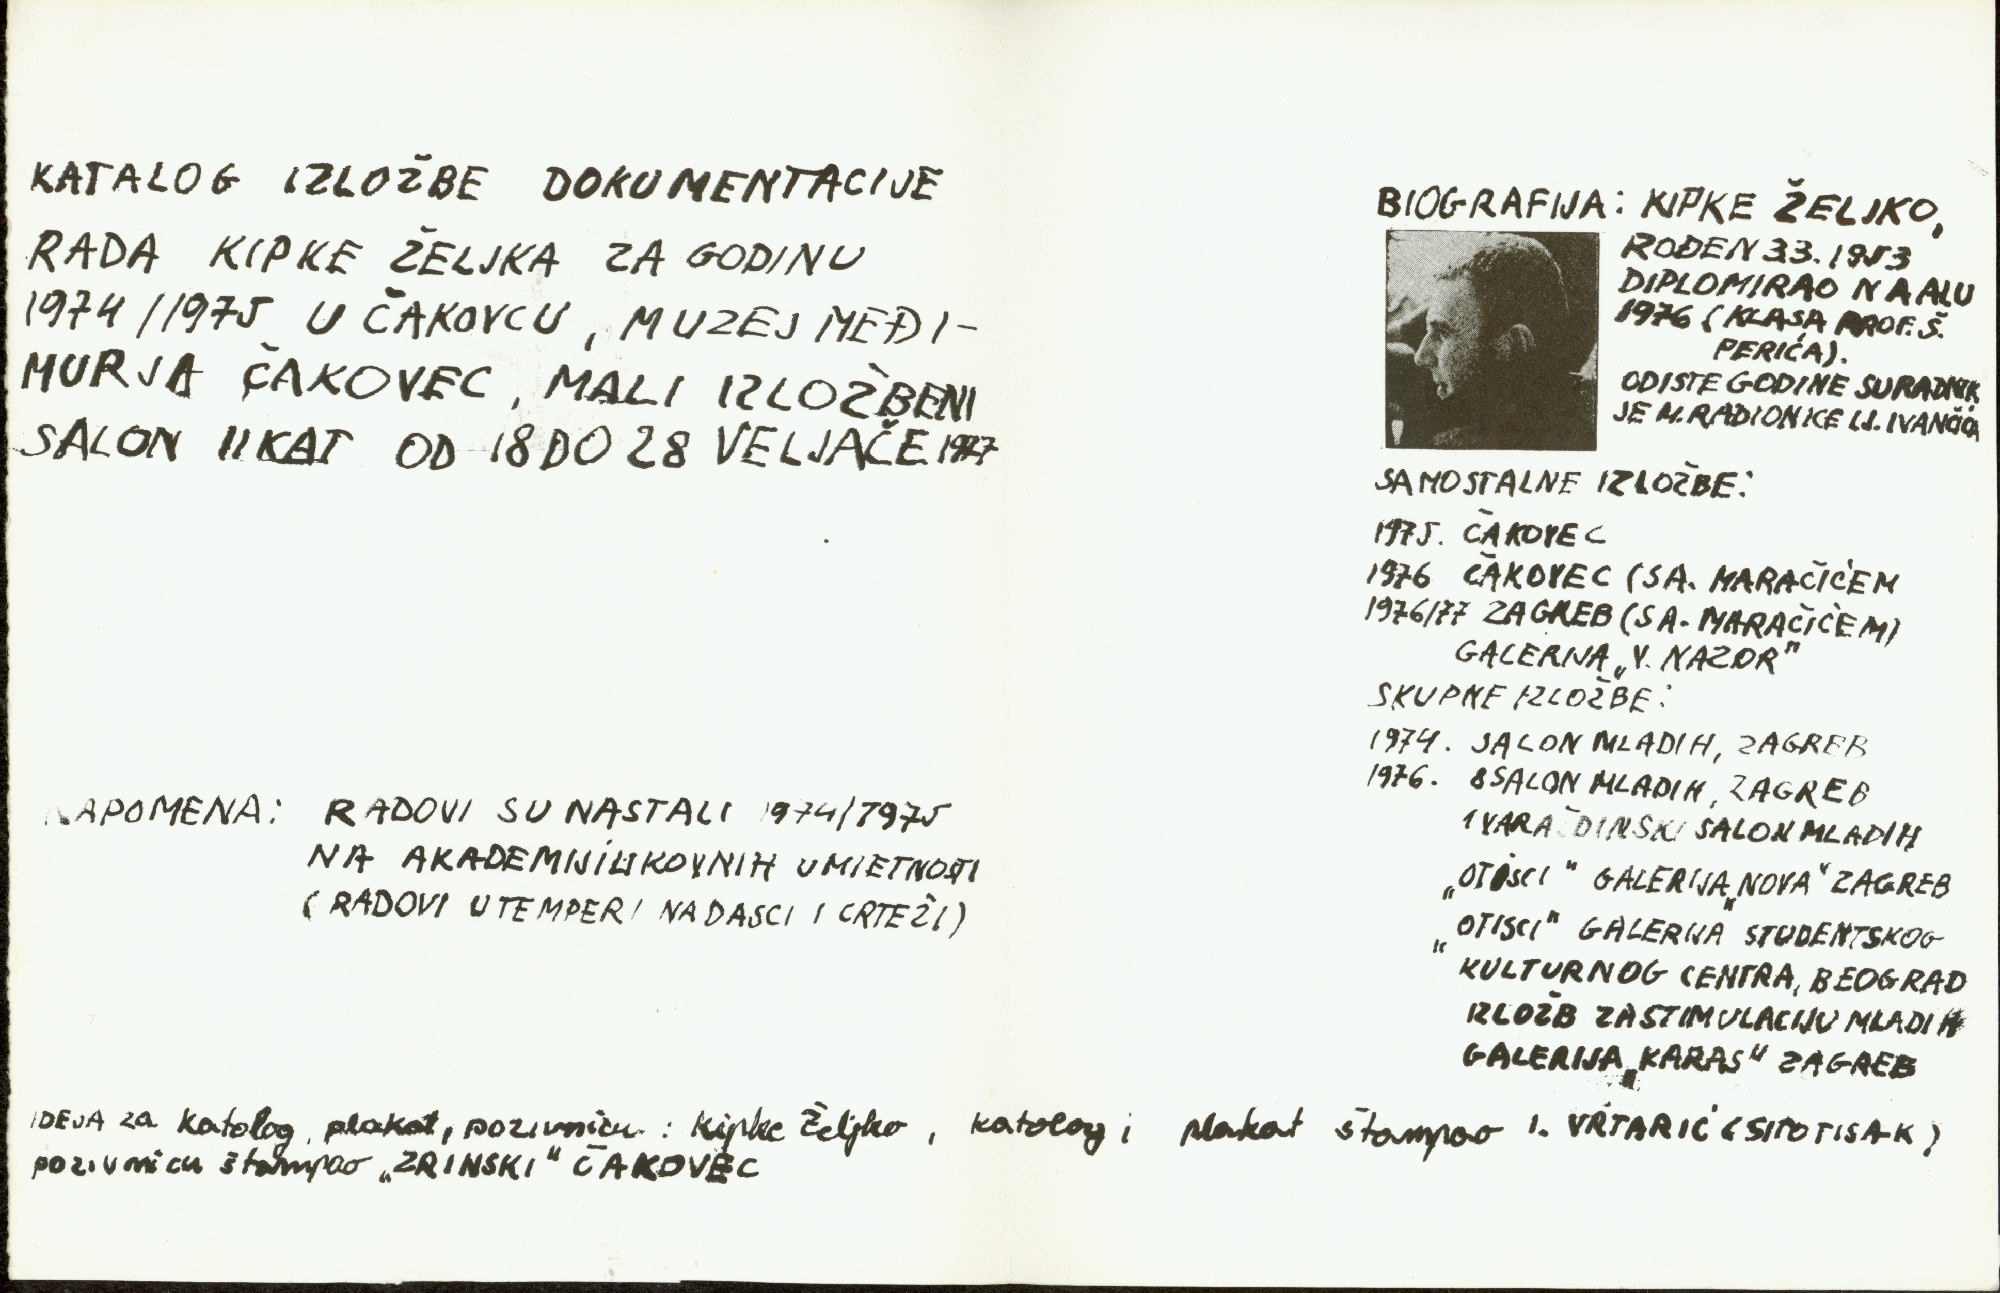 KATALOG IZLOŽBE DOKUMENTACIJE
RADA KIPKE ŽELJKA ZA GODINU
1974/1975 U ČAKOVCU, MUZEJ MEĐI-
MURJA ČAKOVEC, MALI IZLOŽBENI
SALON II KAT OD 18 DO 28 VELJAČE 1977
NAPOMENA: RADOVI SU NASTALI 1974/1975
NA AKADEMIJI LIKOVNIH UMIETNOSTI
(RADOVI U TEMPERI NA DASCI I CRTEŽI)
BIOGRAFIJA: KIPKE ŽELJKO,
ROĐEN 3 3. 1953
DIPLOMIRAO NA ALU
1976 (KLASA PROF. Š.
PERIĆA).
OD ISTE GODINE SURADNIK
JE M. RADIONICE LJ. IVANČIĆA
SAMOSTALNE IZLOŽBE:
1975. ČAKOVEC
1976 ČAKOVEC (S A. MARAČIĆEM
1976/77 ZAGREB (S A. MARAČIĆEM)
GALERIJA „V. NAZOR"
SKUPNE IZLOŽBE:
1974. SALON MLADIH, ZAGREB
1976. 8 SALON MLADIH, ZAGREB
1 VARAŽDINSKI SALON MLADIH
„OTISCI" GALERIJA „NOVA" ZAGREB
„OTISCI" GALERIJA STUDENTSKOG
KULTURNOG CENTRA, BEOGRAD
IZLOŽB ZA STIMULACIJU MLADIH
GALERIJA „KARAS" ZAGREB
IDEJA za katalog, plakat, pozivnicu : Kipke Željko, katalog i plakat štampao I. VRTARIĆ (SITOTISAK)
pozivnicu štampao „ZRINSKI" ČAKOVEC